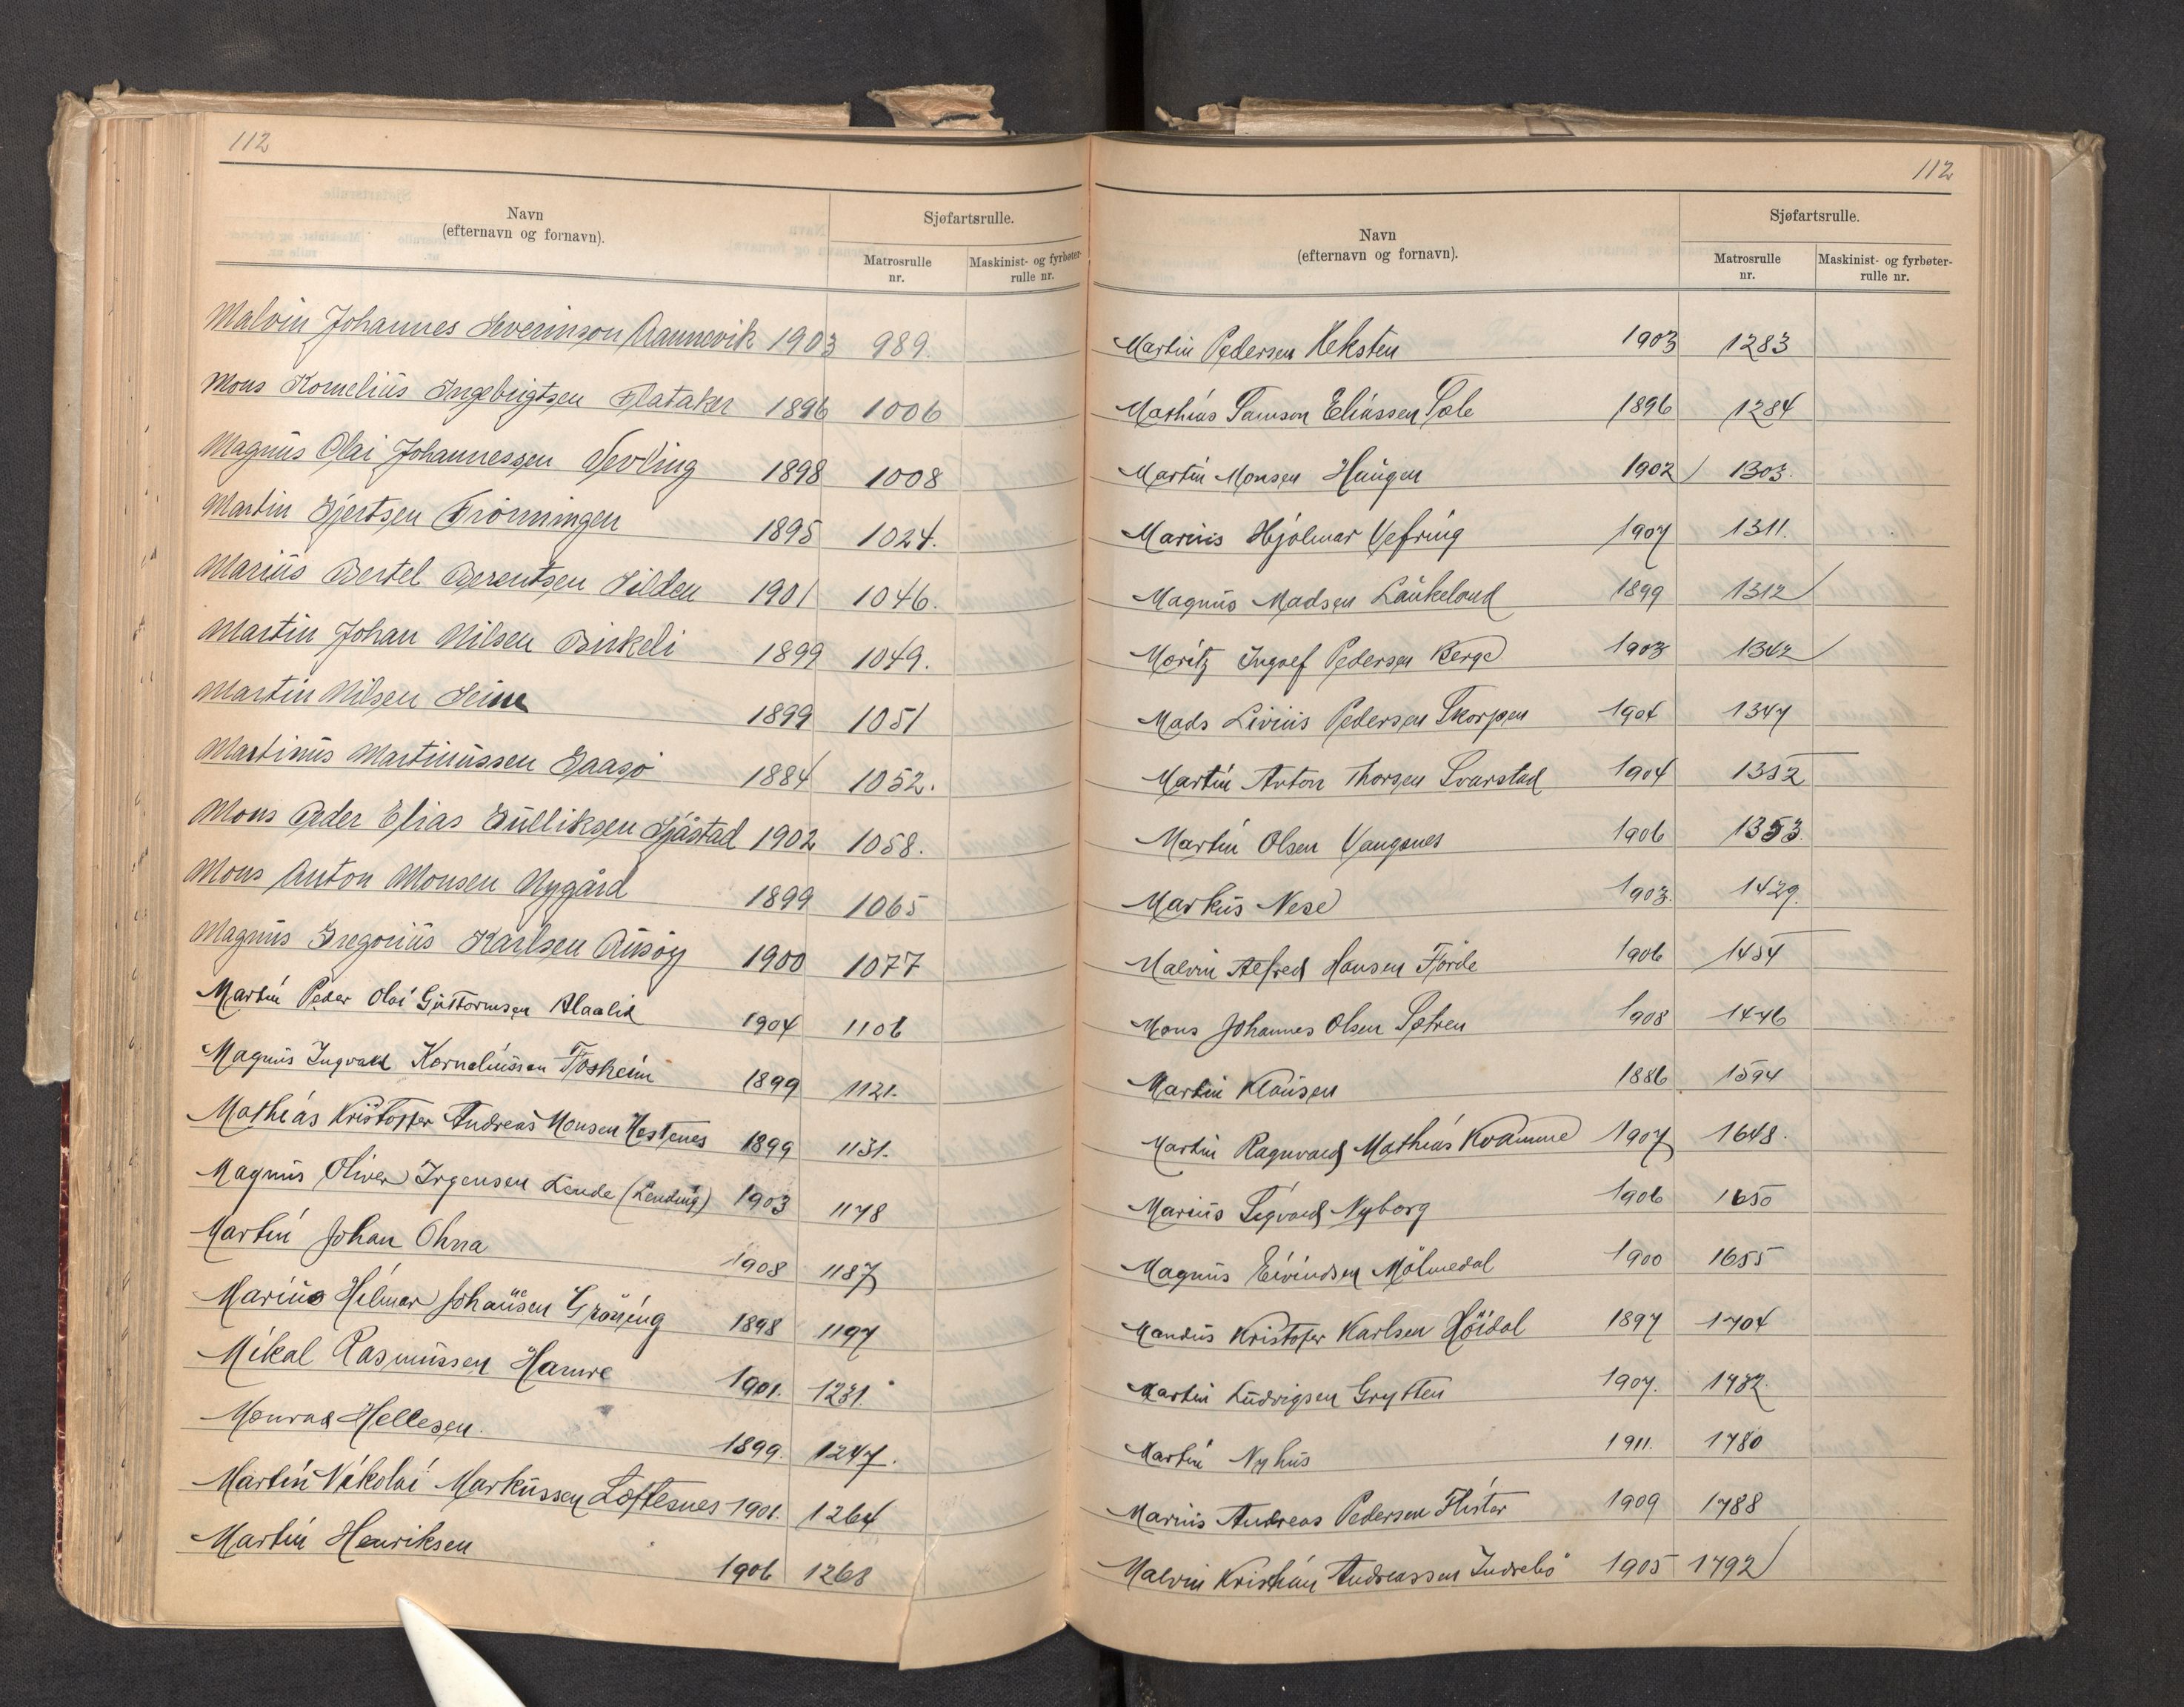 112
Navn
(efternavn og fornavn).
Sjøfartsrulle.
Matrosrulle
nr.
Maskinist- og fyrbøter-
rulle nr.
Malvin Johannes Severinson Rannevik 1903 989.
Mons Kornelius Ingebrigtsen Flataker 1896 1006
Magnus Olai Johannessen Sevling 1898 1008
Martin Gjertsen Frönningen 1895 1024.
Marius Bertel Berentsen Silden 1901 1046.
Martin Johan Nilsen Birkeli 1899 1049.
Martin Nilsen Seim 1899 1051
Martinus Martinussen Gaasö 1884 1052.
Mons Peder Elias Gulliksen Sjåstad 1902 1058.
Mons Anton Monsen Nygård 1899 1065
Magnus Gregorius Karlsen Ausöy 1900 1077
Martin Peder Olai Guttormsen 1904 1106
Magnus Ingvald Korneliussen Fosheim 1899 1121.
Mathias Kristoffer Andreas Monsen Hestenes 1899 1131.
Magnus Oliver Irgensen Lende (Lending) 1903 1178
Martin Johan Ohna 1908 1187
Marius Hilmar Johansen Gröning 1898 1197
Mikal Rasmussen Hamre 1901. 1231.
Monrad Hellesen. 1899. 1247.
Martin Nikolai Markussen Loftesnes 1901. 1264
Martin Henriksen 1906 1268
112
Navn
(efternavn og fornavn).
Sjøfartsrulle.
Matrosrulle
nr.
Maskinist- og fyrbøter-
rulle nr.
Martin Pedersen Reksten 1903 1283
Mathias Samson Eliassen Sole 1896 1284
Martin Monsen Haugen 1902 1303.
Marius Hjalmar Vefring 1907 1311.
Magnus Madsen Laukeland 1899 1312
Moritz Ingolf Pedersen Berge 1903 1342
Mads Livius Pedersen Skorpen 1904 1347
Martin Anton Thorsen Svarstad 1904 1352
Martin Olsen Vangsnes 1906 1353.
Markus Nese 1903. 1429.
Malvin Alfred Hansen Förde 1906 1454
Mons Johannes Olsen Sætren 1908 1476
Martin Klausen 1886 1594
Martin Ragnvald Mathias Kvamme 1907 1648.
Marius Sigvald Nyborg 1906 1650
Magnus Eivindsen Mölmedal 1900 1655
Mandus Kristofer Karlsen Höidal 1897 1704
Martin Ludvigsen Grytten 1907. 1732.
Martin Nyhus 1911. 1780
Marius Andreas Pedersen Flister 1909 1788
Malvin Kristian Andreassen Indrebö 1905 1792